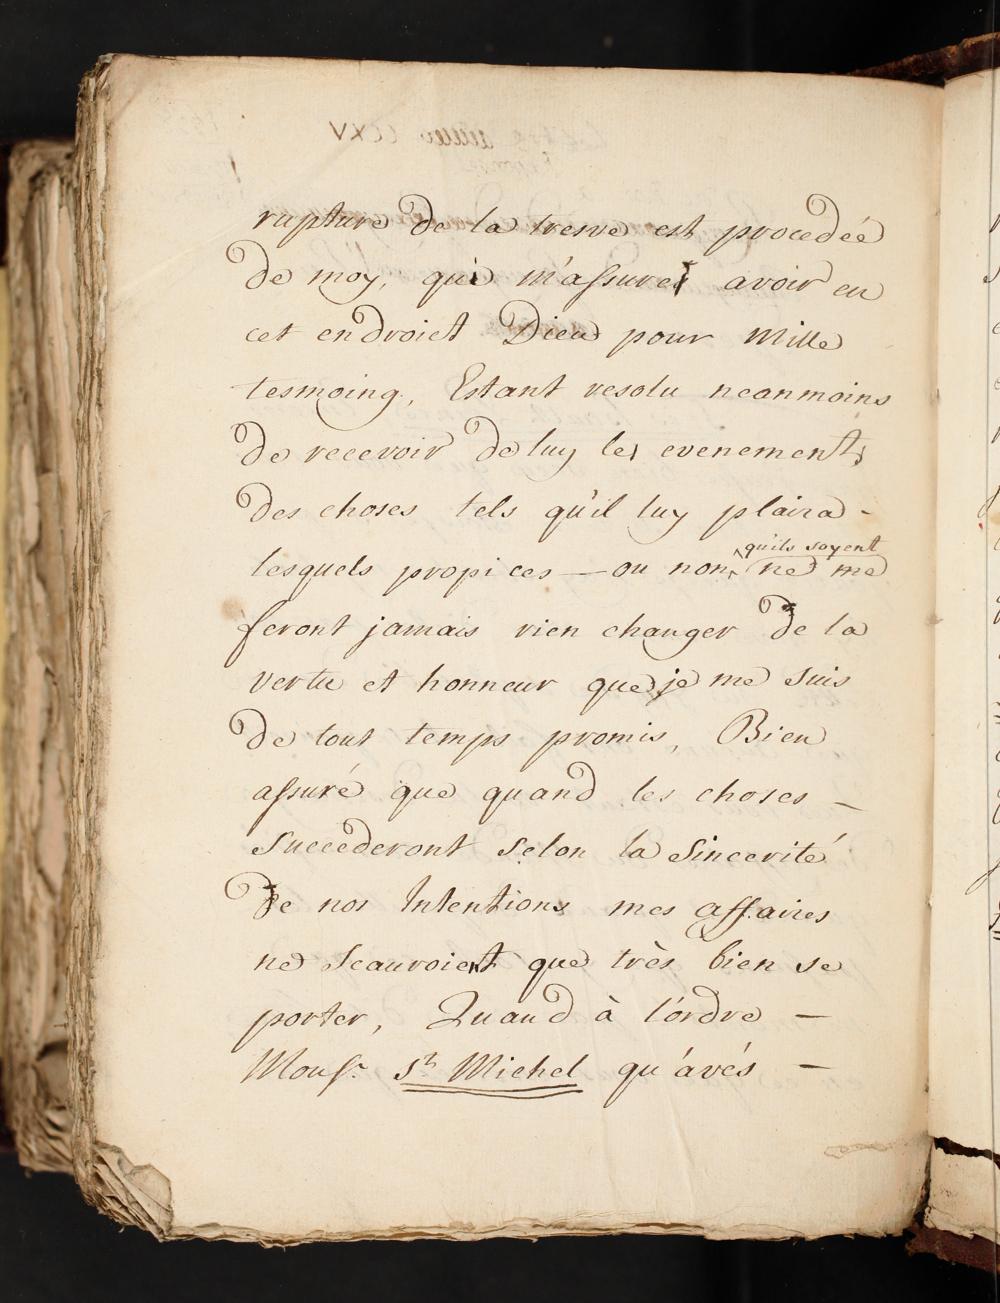 rupture de la treuve est procedée
de moy, qui m'assure avoir eu
cet endroict Dieu pour Mille
tesmoing, Estant resolu neonmoins
de recevoir de luy les evenements
des choses tels qu'il luy plaira -
lesquels propices — ou non, qu'ils soyent ne me
feront jamais rien changer de la
vertu et honneur que je me suis
de tout temps promis, Bien
assuré que quand les choses —
succéderont selon la sincerité
De nos Intentions mes affaires
ne scauroient que très bien se
porter, Quand à l'ordre —
Monsr. St. Michel qu'avés —